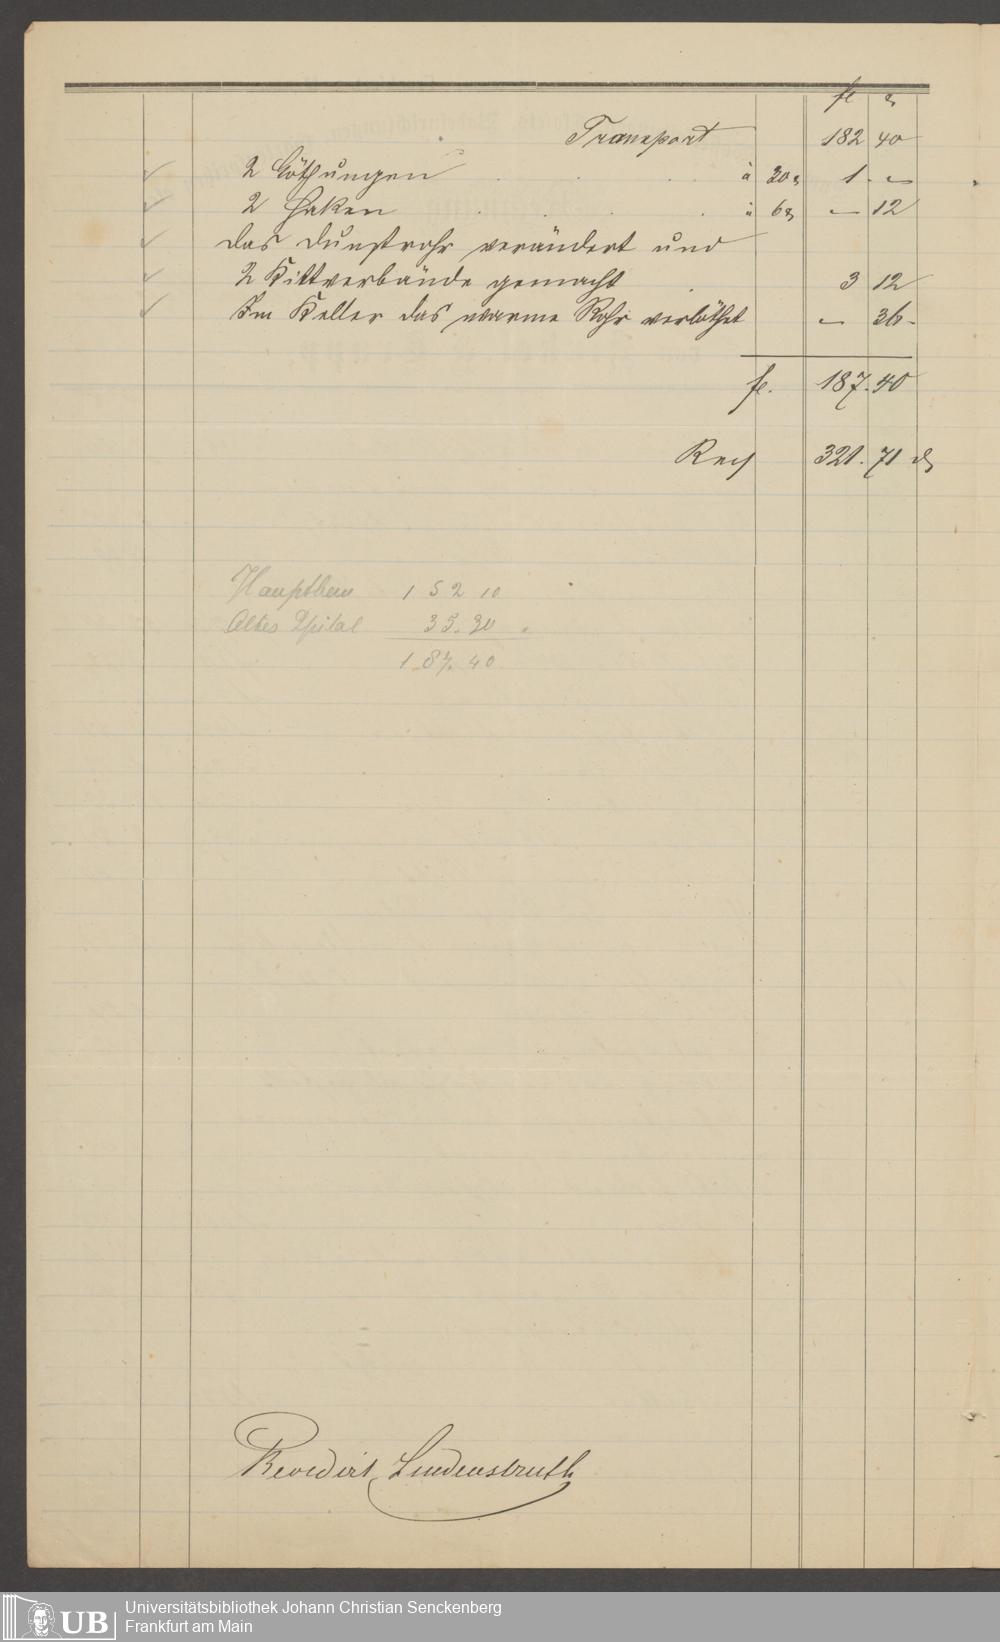 fl x
Transport 182 40
2 Löthungen à 30x 1. –
2 Haken à 6x – 12
das Dunstrohr verändert und
2 Kittverbände gemacht 3 12
Im Keller das warme Rohr verlöthet – 36
fl. 187. 40
321. 71
Hauptbau 152 10
Altes Spital 35. 30
187. 40
Revidirt, Lindenstruth
UB Universitätsbibliothek Johann Christian Senckenberg
Frankfurt am Main